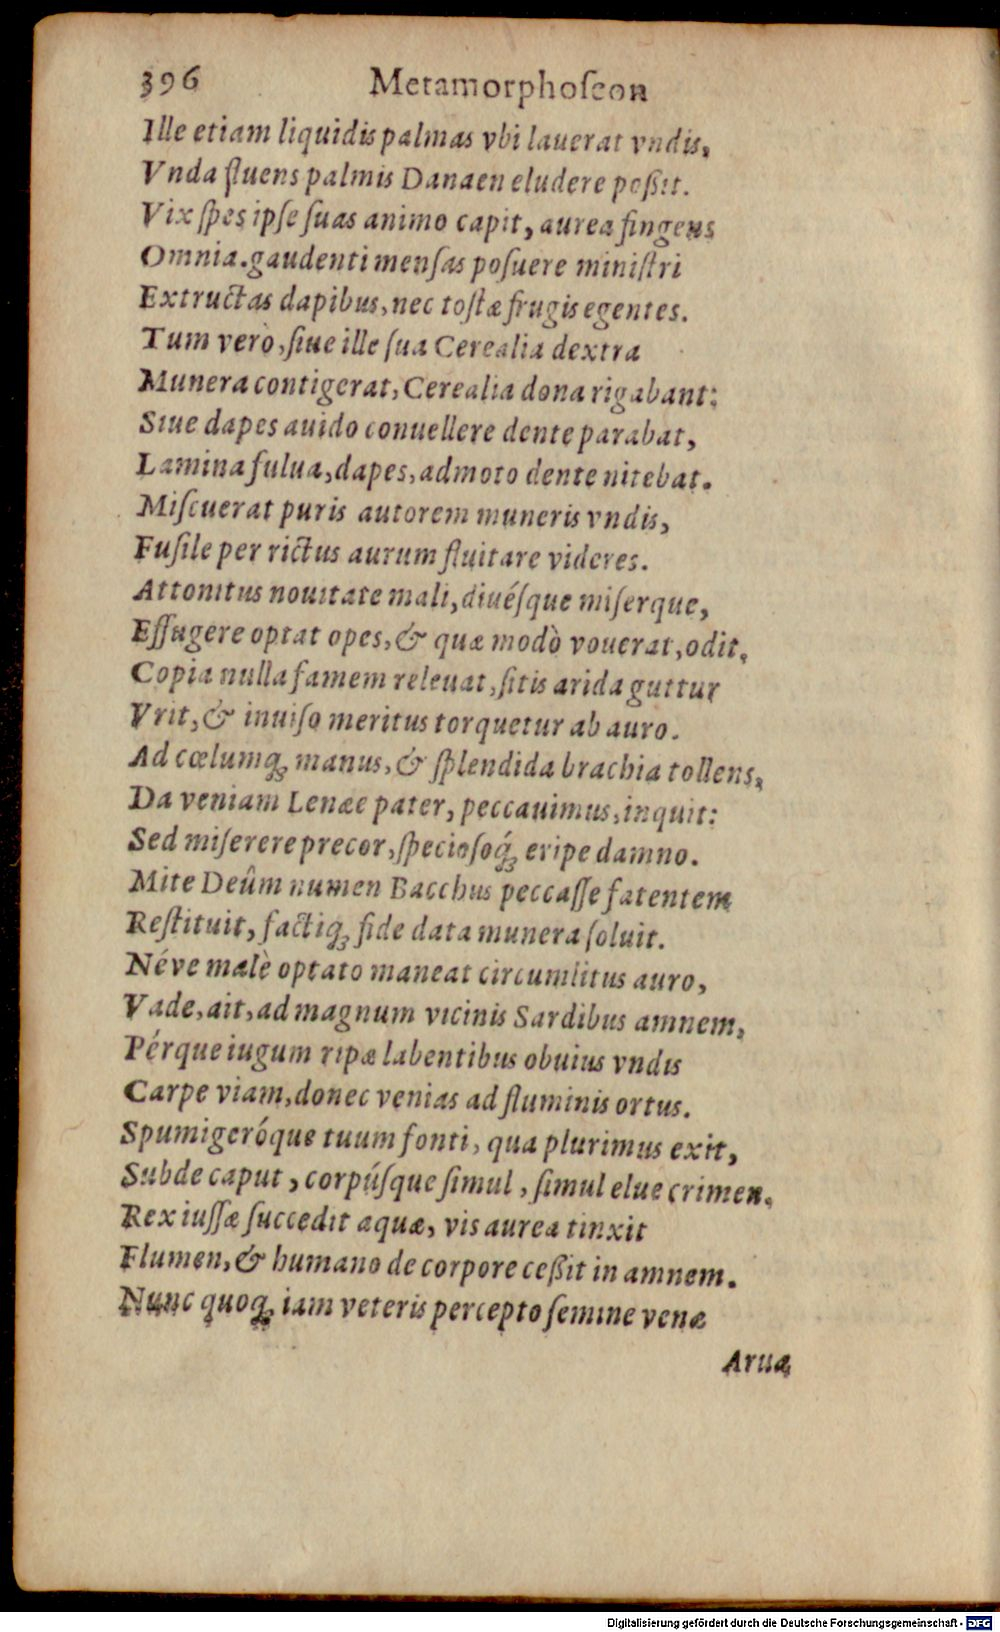 396 Metamorphoſeon
Ille etiam liquidis palmas vbi lauerat vndis,
Vnda fluens palmis Danaen eludere poßit.
Vix ſpes ipſe ſuas animo capit, aurea fingens
Omnia. gaudenti menſas poſuere miniſtri
Extructas dapibus, nec toſtæ frugis egentes.
Tum verò, ſiue ille ſua Cerealia dextra
Munera contigerat, Cerealia dona rigabant:
Siue dapes auido conuellere dente parabat,
Lamina fulua, dapes, admoto dente nitebat.
Miſcuerat puris autorem muneris vndis,
Fuſile per rictus aurum fluitare videres.
Attonitus nouitate mali, diuéſque miſerque,
Effugere optat opes, & quæ modò vouerat, odit.
Copia nulla famem releuat, ſitis arida guttur
Vrit, & inuiſo meritus torquetur ab auro.
Ad cœlumq́ꝫ manus, & ſplendida brachia tollens,
Da veniam Lenæe pater, peccauimus, inquit:
Sed miſerere precor, ſpecioſoq́ꝫ eripe damno.
Mite Deûm numen Bacchus peccaſſe fatentem
Reſtituit, factiqꝫ fide data munera ſoluit.
Néve malè optato maneat circumlitus auro,
Vade, ait, ad magnum vicinis Sardibus amnem,
Pérque iugum ripæ labentibus obuius vndis
Carpe viam, donec venias ad fluminis ortus.
Spumigeróque tuum fonti, qua plurimus exit,
Subde caput, corpúſque ſimul, ſimul elue crimen.
Rex iuſſæ ſuccedit aquæ, vis aurea tinxit
Flumen, & humano de corpore ceßit in amnem.
Nunc quoqꝫ iam veteris percepto ſemine venæ
Arua
Digitalisierung gefördert durch die Deutsche Forschungsgemeinschaft - DFG